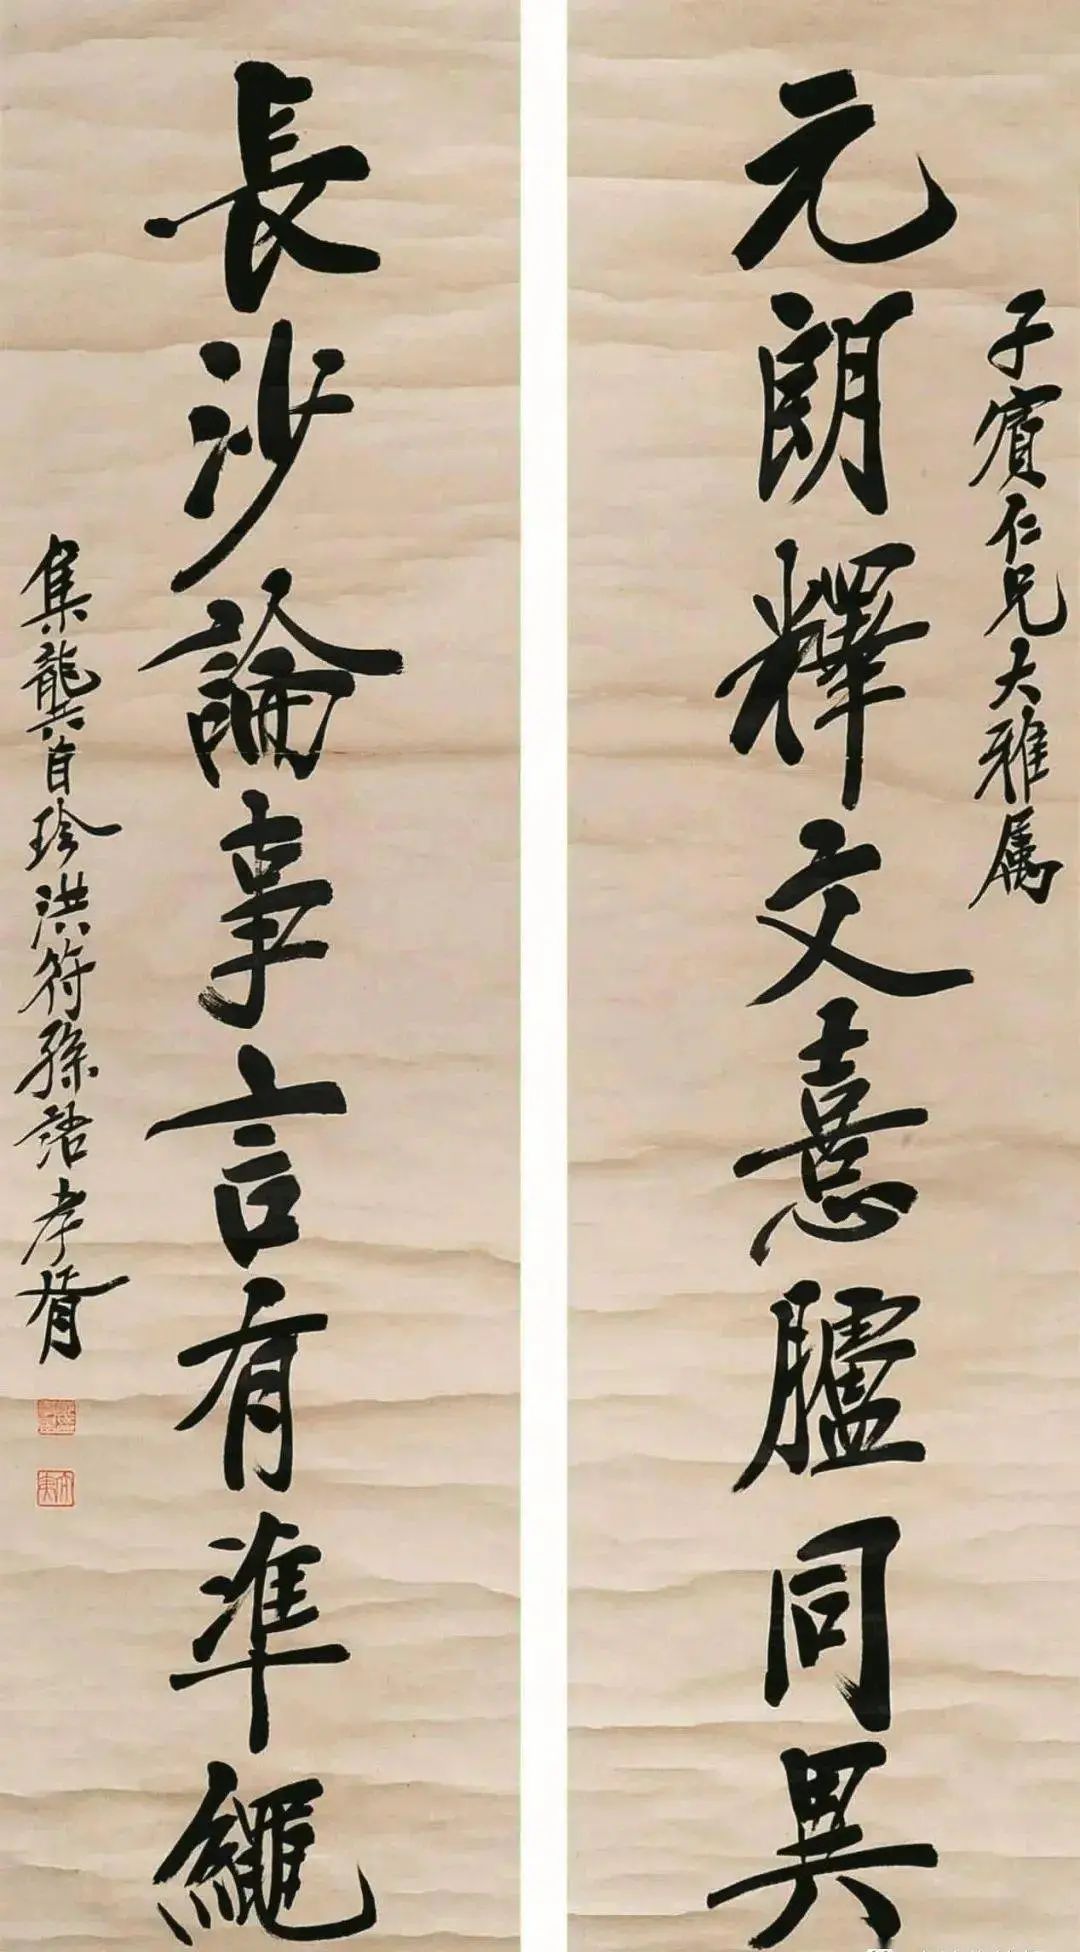 子賓仁兄大雅屬
元朗釋文憙臚同異
長沙論事言有準繩
集龔自珍洪符孫語孝胥